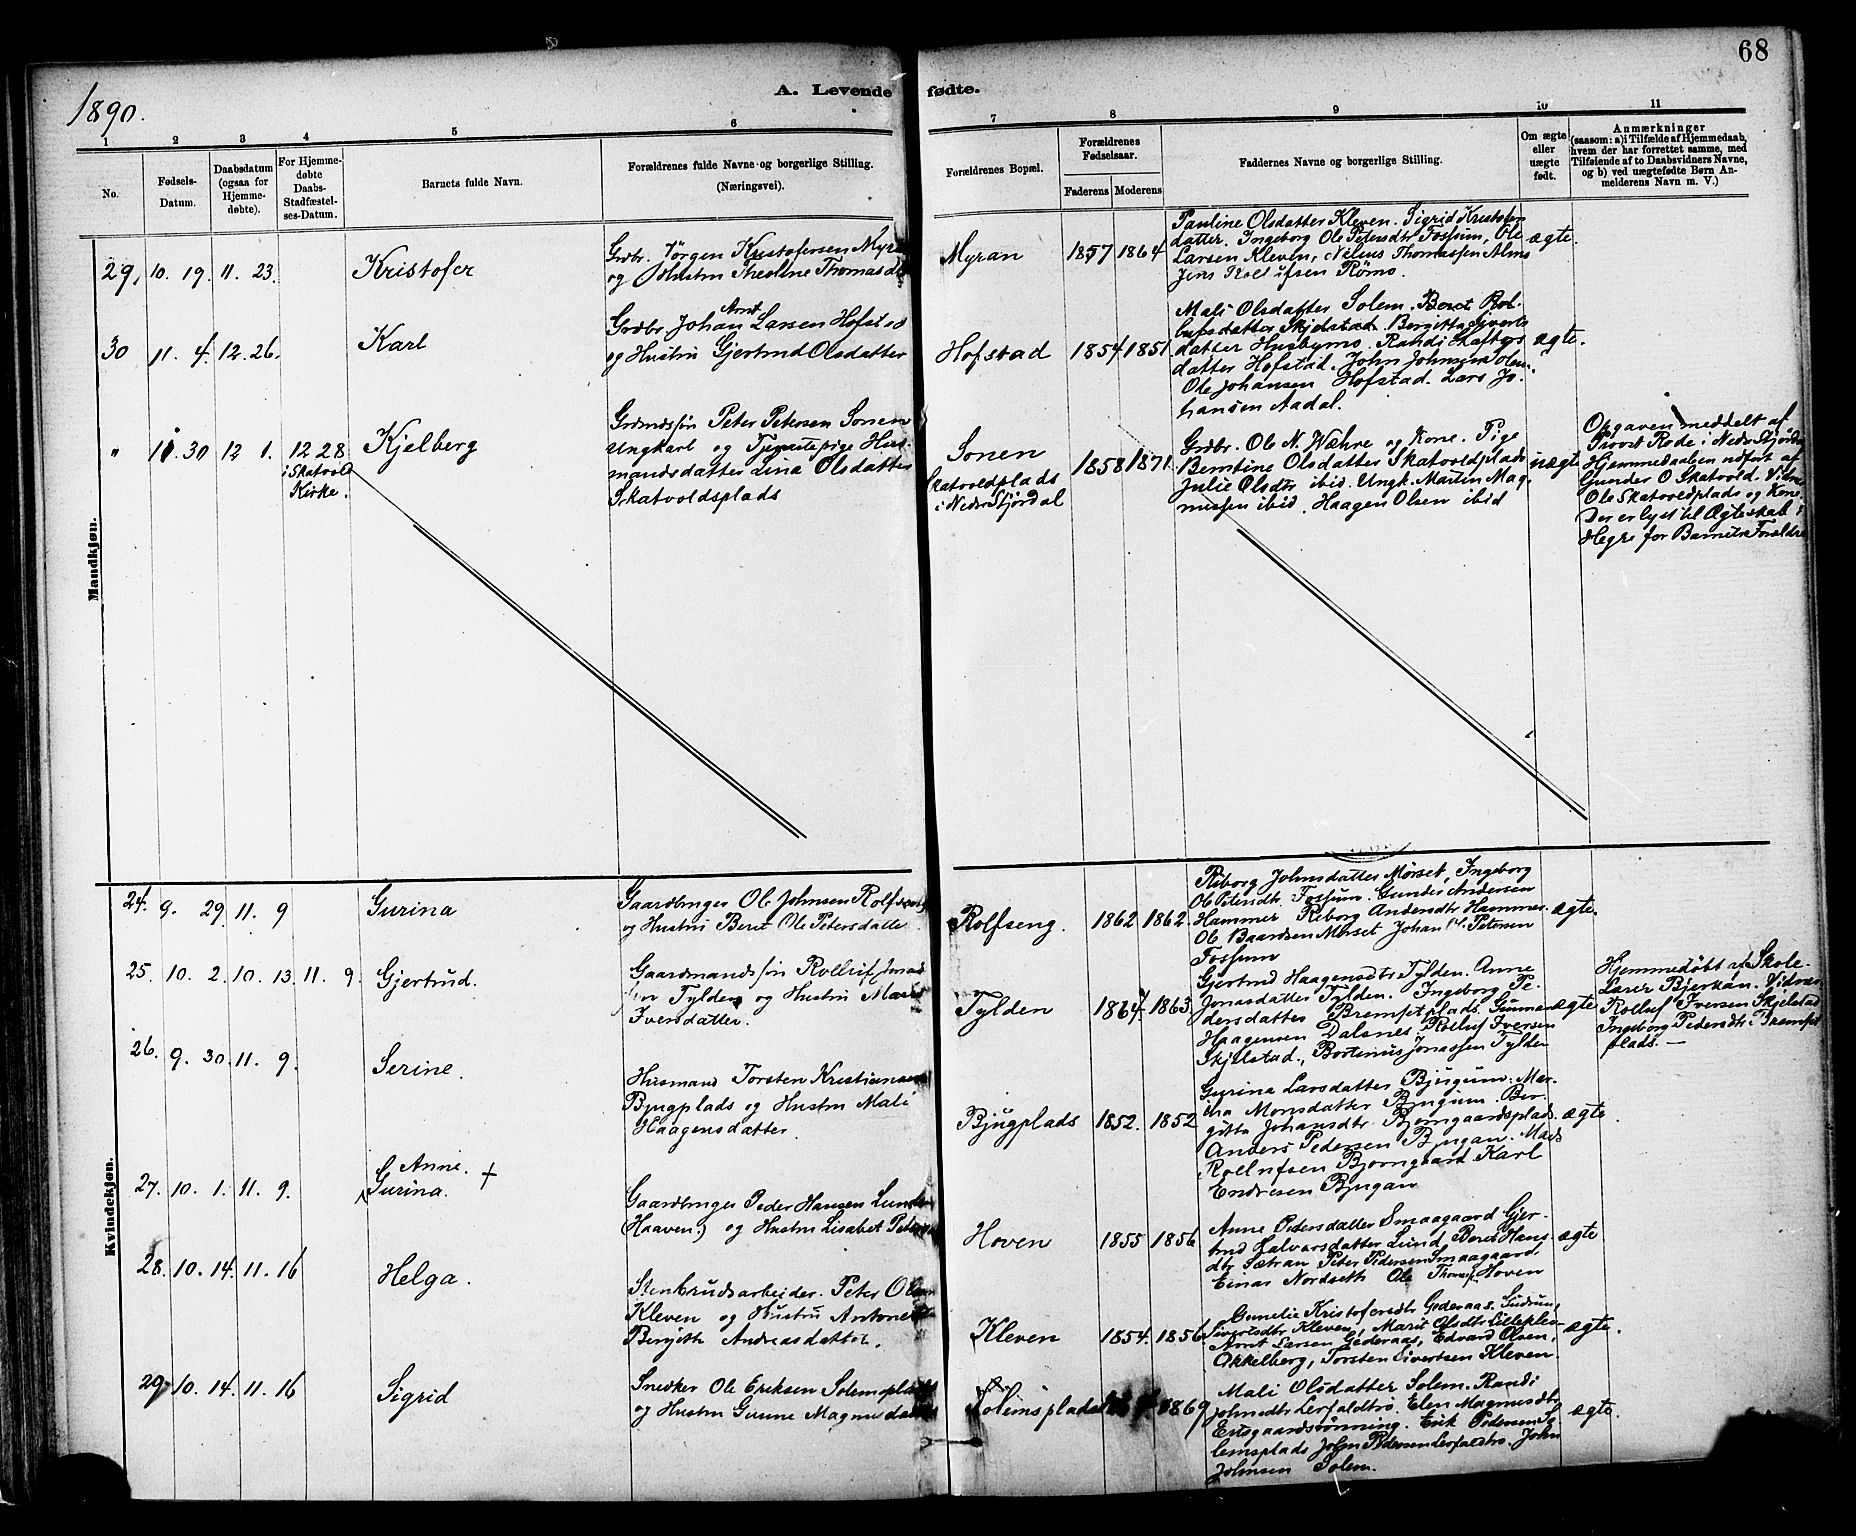 68
1890.
A. Levende fødte.
1 2 3 4 5 6 7 8 9 10 11
No.
Fødsels-
Datum.
Daabsdatum
(ogsaa for
Hjemme-
døbte).
For Hjemme-
døbte
Daabs-
Stadfæstel-
ses-Datum.
Barnets fulde Navn.
Forældrenes fulde Navne og borgerlige Stilling.
(Næringsvei).
Forældrenes Bopæl.
Forældrenes
Fødselsaar.
Faderens Moderens
Faddernes Navne og borgerlige Stilling.
Om ægte
eller
uægte
født.
Anmærkninger
(saasom: a) i Tilfælde af Hjemmedaab,
hvem der har forrettet samme, med
Tilføiende af to Daabsvidners Navne,
og b) ved uægtefødte Børn An-
melderens Navn m. V.)
Mandkjøn.
29, 10. 19. 11. 23. Kristofer
Grdbr. Jørgen Kristofersen Myran
og Hustru Thomasd
Myran 1857 1864
Pauline Olsdatter Kleven. Sigrid Kristofer
datter. Ingeborg Ole Petersdtr Fossum, Ole
Larsen Kleven, Nelius Thomassen Alms
Jens Rollufsen Rømo.
ægte.
30 11. 4. 12. 26. Karl
Arnt
Grdbr. Johan Larsen Hofstad
og Hustru Gjertrud Olsdatter
Hofstad 1854. 1851.
Mali Olsdatter Solem. Beret Rol-
lufsdatter Skjelstad. Bergitta Siverts
datter Husbymo. Randi
datter Hofstad. John Johnsen Solem.
Ole Johansen Hofstad. Lars Jo-
hansen Aadal.
ægte.
" 11. 30 12 1. 12 28
i Skatvold
Kirke.
Kjelberg
Grdmdssøn Peter Petersen Sonen
Ungkarl og Tjenestepige Hus-
mandsdatter Lina Olsdatter
Skatvoldsplads
Sonen
Skatvoldplads
i Nedre Stjørdal
1858 1871.
Grdbr. Ole N. Wæhre og Kone. Pige
Berntine Olsdatter Skatvoldplads
Julie Olsdtr ibid. Ungk. Martin Mag-
nussen ibid. Haagen Olsen ibid
uægte
Opgaven meddelt af
Provst Rode i Nedre Stjørdal
Hjemmedaaben udført af
Gunder O Skatvold. Vidner
Ole Skatvoldplads og Kone.
Der er lyst til Ægteskab i
Hegre for Barnets Forældre
Kvindekjøn.
24. 9. 29. 11. 9 Gurina
Gaardbruger Ole Johnsen Rolfseng
og Hustru Beret Ole Petersdatte
Rolfseng. 1862 1862.
Riborg Johnsdatter Mørset, Ingeborg
Ole Petersdtr. Fossum. Gunder Andersen
Hammer Riborg Andersdtr Hammer.
Ole Baardsen Mørset Johan Petersen
Fossum
ægte.
25. 10. 2. 10. 13. 11. 9. Gjertrud.
Gaardmandssøn Rolluf Jonas
sen Tylden og Hustru Marit
Iversdatter.
Tylden 1864. 1863.
Gjertrud Haagensdtr Tylden. Anne
Jonasdatter Tylden. Ingeborg Pe-
dersdatter Bremsetplads. Gunnar
Haagensen Dalsnes. Rolluf Iversen
Skjelstad, Bortinius Jonassen Tylden
ægte
Hjemmedøbt af Skole-
lærer Bjerkan. Vidner
Rolluf Iversen Skjelstad
Ingeborg Pedersdtr. Bremset
plads. —
26. 9. 30. 11. 9. Serine.
Husmand Torsten Kristiansen
Bjugplads og Hustru Mali
Haagensdatter.
Bjugplads 1852. 1852
Gurina Larsdatter Bjugum. Mar-
Monsdatter Bjugum. Ber-
gitta Johansdtr. Bjørngaardsplads.
Anders Pedersen Bjugan. Mads
Rollufsen Bjørngaard Karl
Endresen Bjugan
ægte.
27. 10. 1. 11. 9. Anne.
Gurina. +
Gaardbruger Peder Hansen Lunden
(Haaven) og Hustru Lisabet Peters
Hoven 1855 1856
Anne Pedersdatter Smaagaard Gjer-
trud Halvarsdatter Lund, Beret Hans
dtr Sætran Peter Pedersen Smaagaard.
Einar Nordseth Ole Hoven
ægte
28. 10. 14. 11. 16 Helga.
Stenbrudsarbeider. Peter Olsen
Kleven og Hustru Antonette
Bergitte Andreasdatter.
Kleven 1854. 1856
Gunelie Kristofersdtr Gederaas. Gudrun
Sivertsdtr Kleven, Marit Olsdtr Lillekle-
Arnt Larsen Gederaas, Edvard Olsen
Akkelberg, Torsten Sivertsen Kleven.
ægte.
29. 10. 14. 11. 16 Sigrid
Snedker Ole Eriksen Solemsplads
og Hustru Gurine Magnusdatter
Solemsplads 1869
Mali Olsdatter Solem. Randi
Johnsdtr Lerfaldtrø. Elen Magnusdtr
Ertsgaardsrønning. Erik Pedersen So-
lemsplads John Pedersen Lerfaldtrø. John
Johnsen Solem.
ægte.